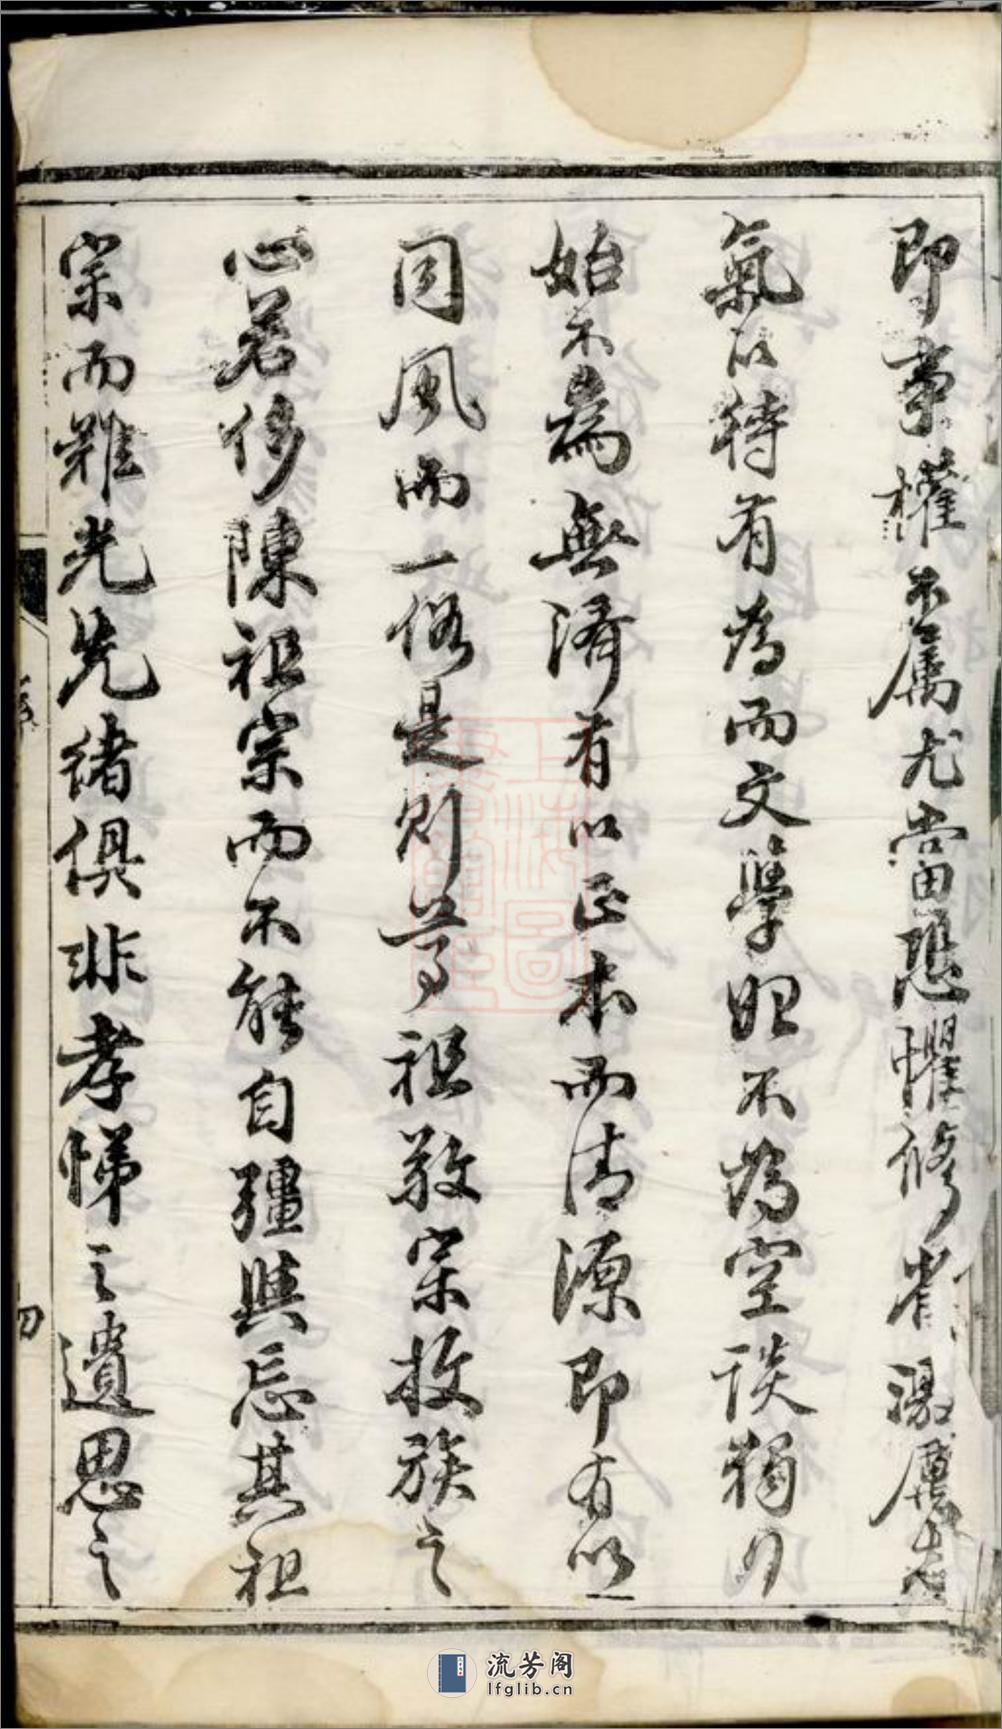 即事權不屬尤當恐懼修省激厲志
氣以待有為而文學始不為空談獨行
始不為無濟有以正本而清源即有以一
同風而一俗是則尊祖敬宗收族之
心若侈陳祖宗而不能自彊與忘其祖
宗而難光先緒俱非孝悌之遺思之
上海圖
流芳阁
lfglib.cn